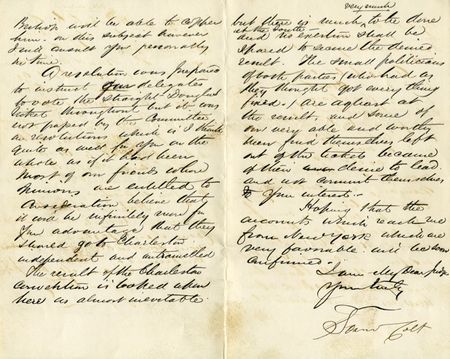 Bishop will be able to
him. on this subject however
I will consult you personally
in time.
A resolution was prepared
to instruct our delegates
to vote the straight Douglas
ticket throughout but it was
not passed by the Committee
on resolutions which is I think
quite as well for you on the
whole as if it had been.
Most of our friends whose
opinions are entitled to
consideration believe that
it will be infinitely more for
your advantage that they
should go to Charleston
independent and untrammelled
The result of the Charleston
convention is looked upon
here as almost inevitable.
very much
but there is much to be done
at the South
and no exertion shall be
spared to secure the desired
result. The small politicians
of both parties (who had as
they thought got everything
fixed) are aghast at
the result, and some of
our very able and worthy
men find themselves left
out of the ticket because
of their desire to lead
and not commit themselves
to your interest.
Hoping that the
accounts which reach me
from New York which are
very favorable will be soon
confirmed.
I am My Dear Judge
Yours truly
Sam Colt